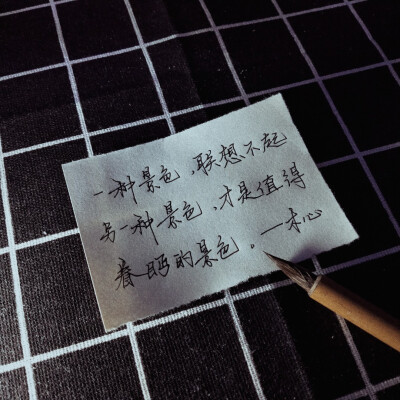 一种景色,联想不起
另一种景色,才是值得
眷眄的景色。一木心